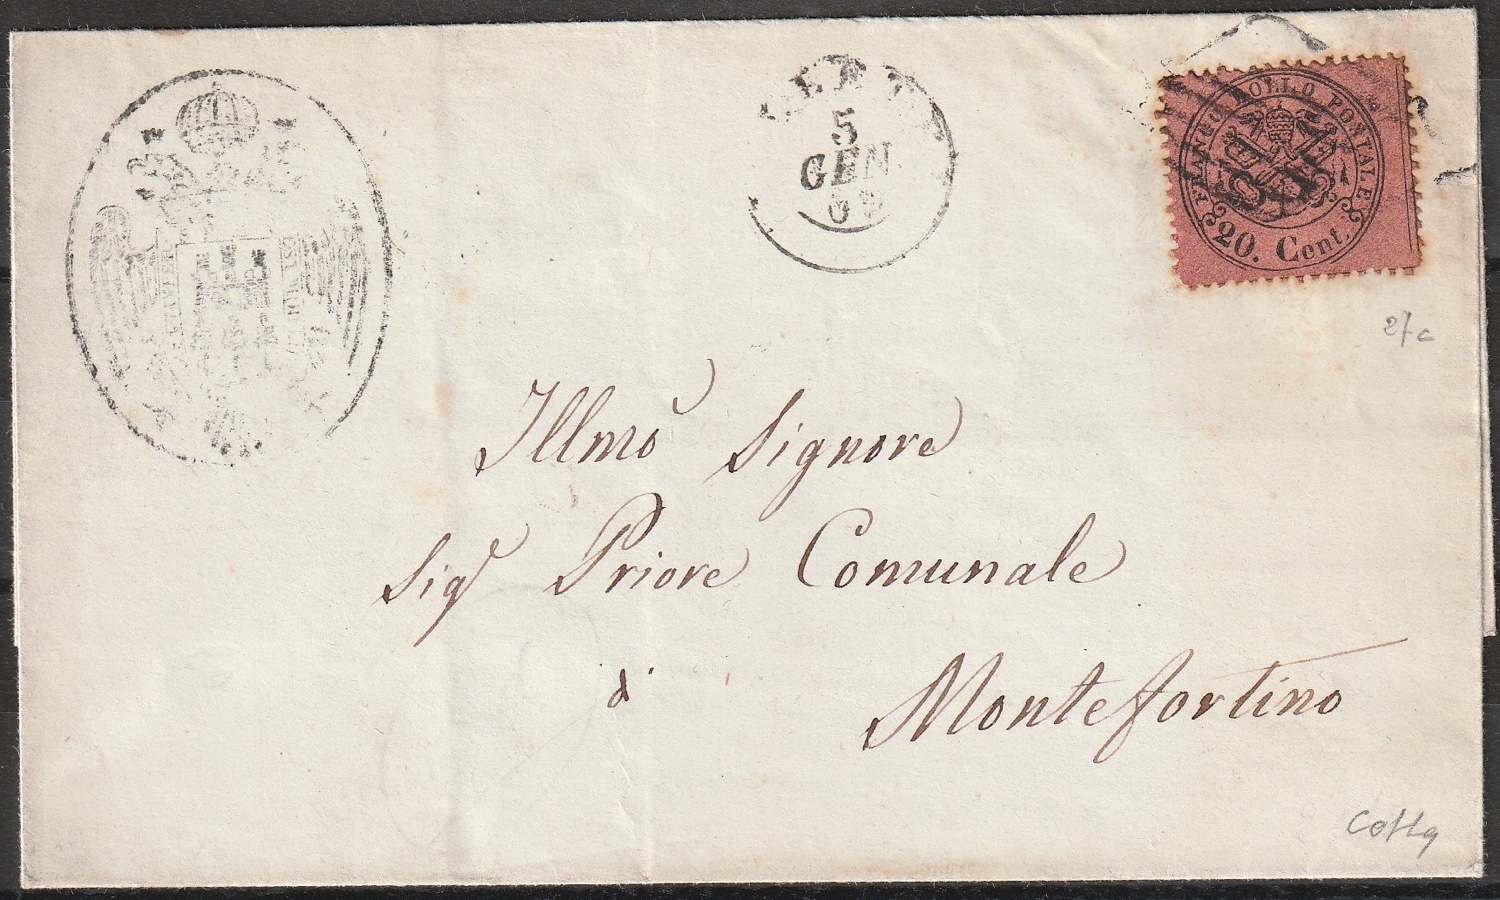 5
GEN
69
FRANCO BOLLO PONTALE
20. Cent.
27c
Illmo Signore
Sigr Priore Comunale
di
Montefortino